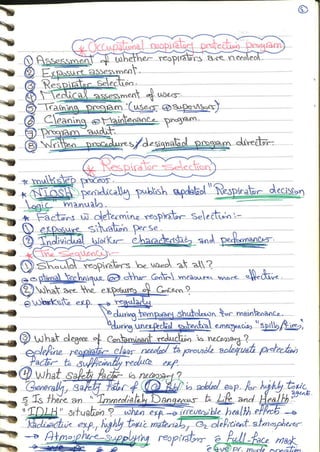 * Occupational respiratory protection program
① Assessment of whether respirators are needed.
② Exposure assessment.
③ Respirator selection.
④ Medical assessment of users
⑤ Training program (users & supervisors)
⑥ Cleaning & Maintenance program.
⑦ Program audit.
⑧ Written procedures/designated program director.
* Respirator selection
* multistep process
* NIOSH periodically publish updated "Respirator decision
Logic manuals.
* Factors w determine respirator selection:-
① exposure situation per se.
② Individual worker characteristics and performances.
* The Sequence:-
① Should respirators be used at all?
optimal technique other control measures more effective.
② What are the exposures of concern?
Worksite exp. → regularly
during temporary shutdown for maintenance.
during unexpected potential emergencies "spills, fires".
③ What degree of contaminant reduction is necessary?
define respirator class needed to provide adequate protection
factor to sufficiently reduce exp
④ What safety factor is necessary?
Generally, safety factor of is added esp. for highly toxic agent.
5 Is there an "Immediately Dangerous to Life and Health"
"IDLH" situation? when exp → irreversible health effects →
Radioactive exp, highly toxic materials, O₂ deficient atmospheres
→ Atmosphere-supplying respirators full-face mask